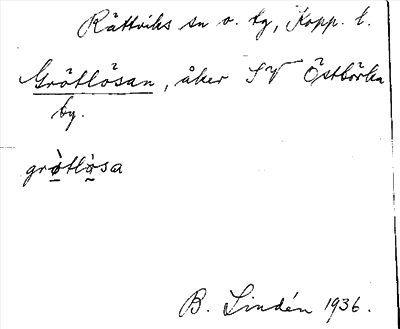 Rättviks sn o. tg, Kopp. l.
Grötlösan, åker SV Östbörka
by.
grò̠tlò̠sa
B. Lindén 1936.